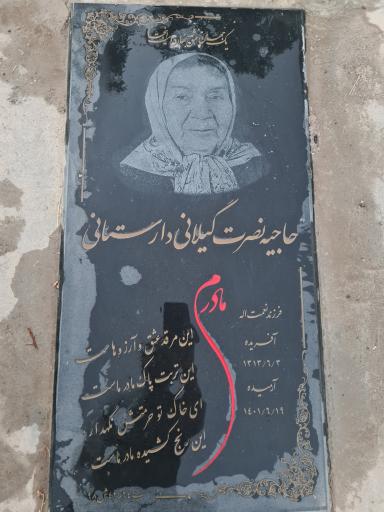 حاجیه نصرت گیلانی دارستانی
مادرم
فرزند نعمت اله
آفریده
۱۳۱۳/۶/۳
آرمیده
۱۴۰۱/۶/۱۹
این مرقد عشق و آرزوهاست
این تربت پاک مادر ماست
ای خاک تو حرمتش نگهدار
این رنج کشیده مادر ماست